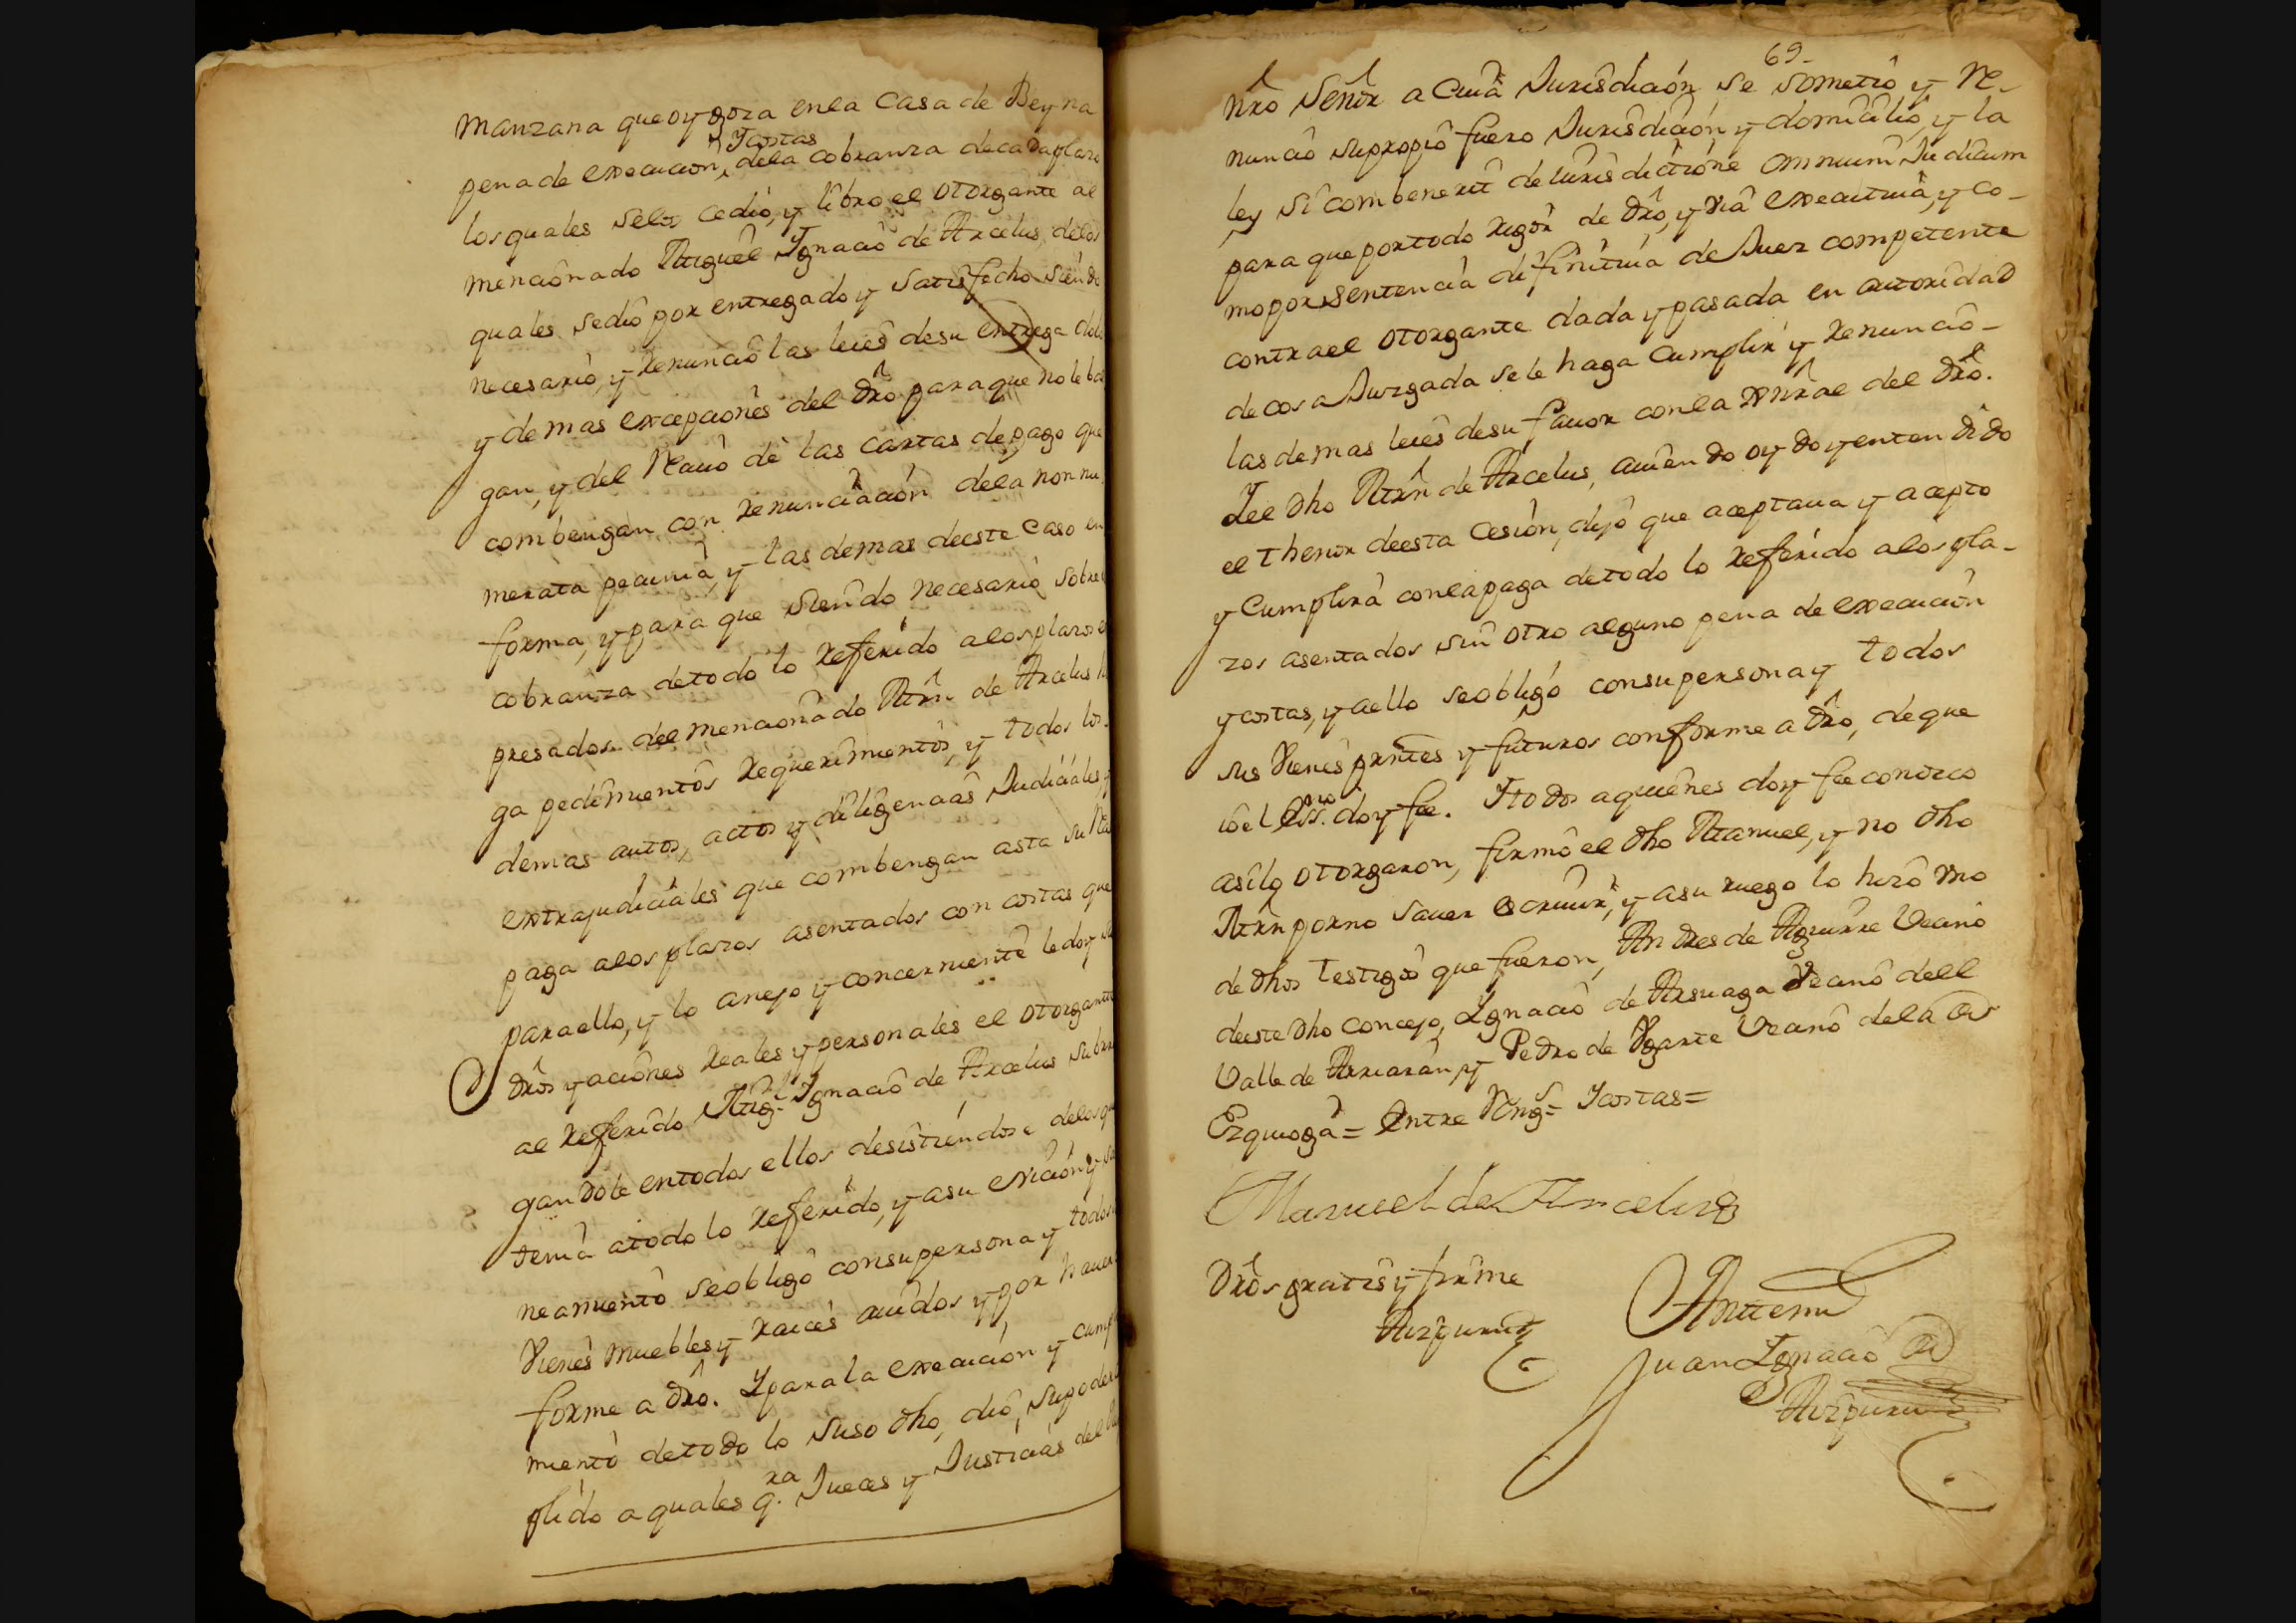 manzana que oy goza en la Casa de Beyna
Ycostas
pena de execucion, dela cobranza decada plazo
los quales selos cedio, y libro el otorgante al
mencionado Miguel Ygnacio de Arcelus, delos
quales sedio por entregado y satisfecho siendo
necesario, y renuncio las leies desu entrega
y demas excepciones del dro para que no le bal
gan, y del Reciuo de las cartas de pago que
combengan con renunciacion dela non nu
merata pecunia, y las demas deeste Caso en
forma, y para que siendo necesario sobre
cobranza detodo lo referido alos plazos ex
presados del mencionado Mrn de Arcelus ha
ga pedimientos requerimientos, y todos los
demas autos, actos y diligencias Judiciales, y
extrajudiciales que combengan asta su
paga alos plazos asentados con costas que
para ello, y lo anejo y concerniente le doy
dros y aciones reales y personales el otorgante
al referido Migl Ygnacio de Arcelus subro
gandole entodos ellos desistiendose delos que
tenia atodo lo referido, y asu eviccion y sa
neamiento seobligo consupersona y todos
vienes muebles y raices auidos y por hauer
forme a dro. Y para la execucion y cumpl
miento detodo lo suso dho, dio, supoder
plido a quales q.ra Jueces y Justicias del
69-
Nro Señor a Cuia Jurisdicion se sometio y re-
nuncio supropio fuero Jurisdicion y domicilio, y la
ley si combenerit de Jurisdictione omnium Judicum
para que portodo rigor de dro, y via executiua, y co-
mo por sentencia difinitiua de Juez competente
contrael otorgante dada y pasada en autoridad
de cosa Juzgada sele haga Cumplir y renuncio-
las demas leies desu fauor conla Gnral del dro.
Y el dho Mrn de Arcelus, auiendo oydo y entendido
el thenor deesta Cesion, dijo que aceptaua y acepto
y Cumplira conlapaga detodo lo referido alos pla-
zos asentados sin otro alguno pena de execucion
y costas, y aello seobligo consupersona y todos
sus Vienes prntes y futuros conforme a dro, deque
io el essno doy fee. Ytodos aquienes doy fee conozco
asilo otorgaron, firmo el dho Manuel, y no dho
Mrn porno sauer escriuir, y asu ruego lo hizo vno
de dhos testigos que fueron, Andres de Aguirre Vecino
deeste dho concejo, Ygnacio de Arsuaga Vecino dell
Valle de Arriaran, y Pedro de Vgarte Vecino dela de
Ezquioga = Entre Rengs = Ycostas =
Manuel de Arcelus
Dros gratis y firme
Aizpuru
Antemi
Juan Ygnacio de
Aizpuru